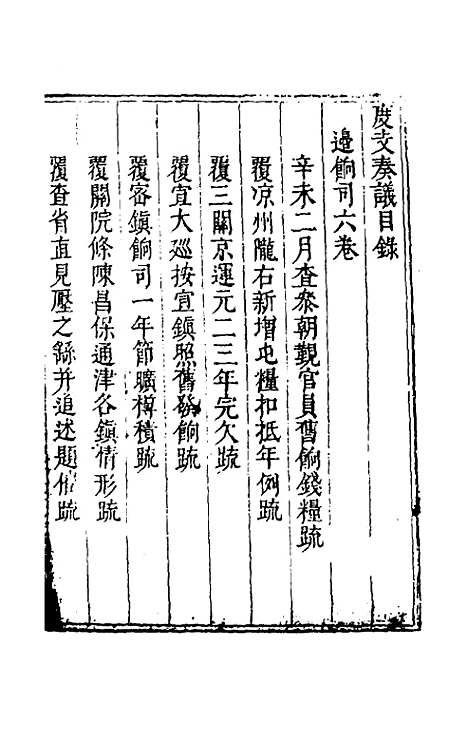 度支奏議目錄
邊餉司六卷
辛未二月查叅朝覲官員舊餉錢糧疏
覆凉州隴右新增屯糧扣抵年例疏
覆三關京運元二三年完欠疏
覆宣大廵按宣鎮照舊發餉疏
覆密鎮餉司一年節曠樽積疏
覆關院條陳昌保通津各鎮情形疏
覆查省直見壓之餘并追述題借疏